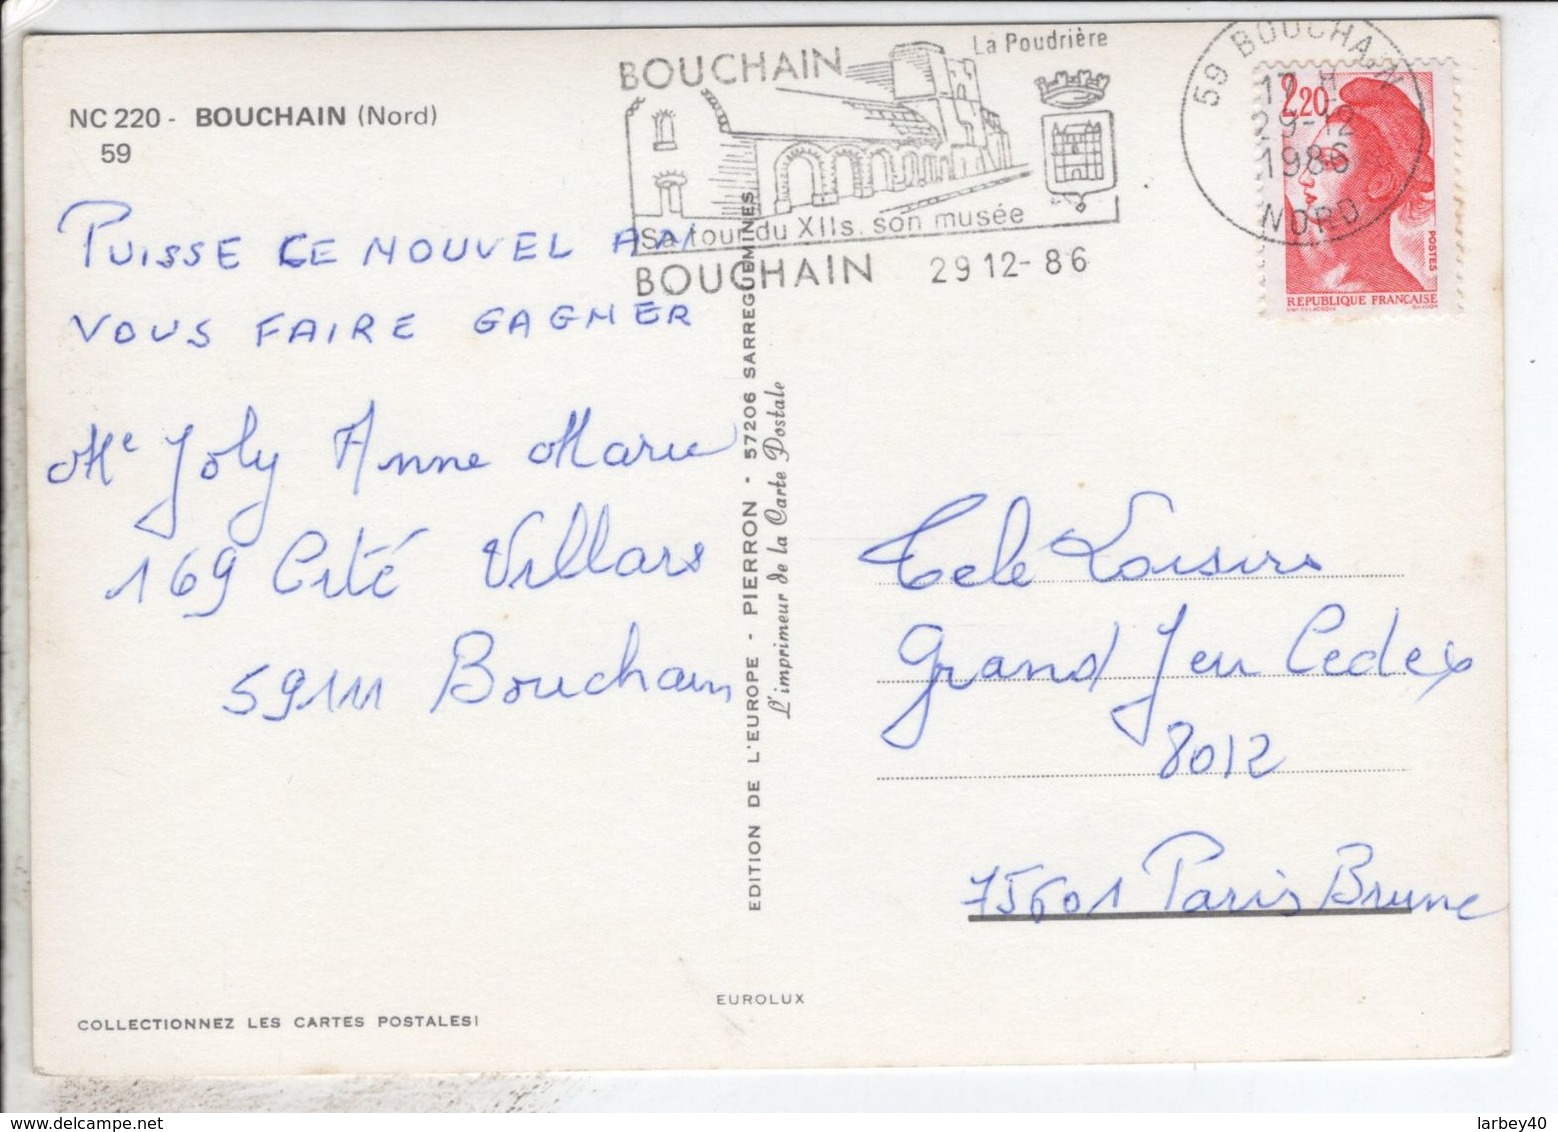 NC 220 - BOUCHAIN (Nord)
59
BOUCHAIN
La Poudrière
Sa tour du XIIs. son musée
BOUCHAIN 29 12-86
59 BOUCHAIN
17 H
29-12
1986
NORD
2,20
POSTES
REPUBLIQUE FRANÇAISE
PUISSE CE NOUVEL AN
VOUS FAIRE GAGNER
Me Joly Anne Marie
169 Cité Villars
59111 Bouchain
EDITION DE L'EUROPE - PIERRON - 57206 SARREGUEMINES
L'imprimeur de la Carte Postale
Tele Loisirs
Grand Jeu Cedex
8012
75601 Paris Brune
EUROLUX
COLLECTIONNEZ LES CARTES POSTALES!
larbey40